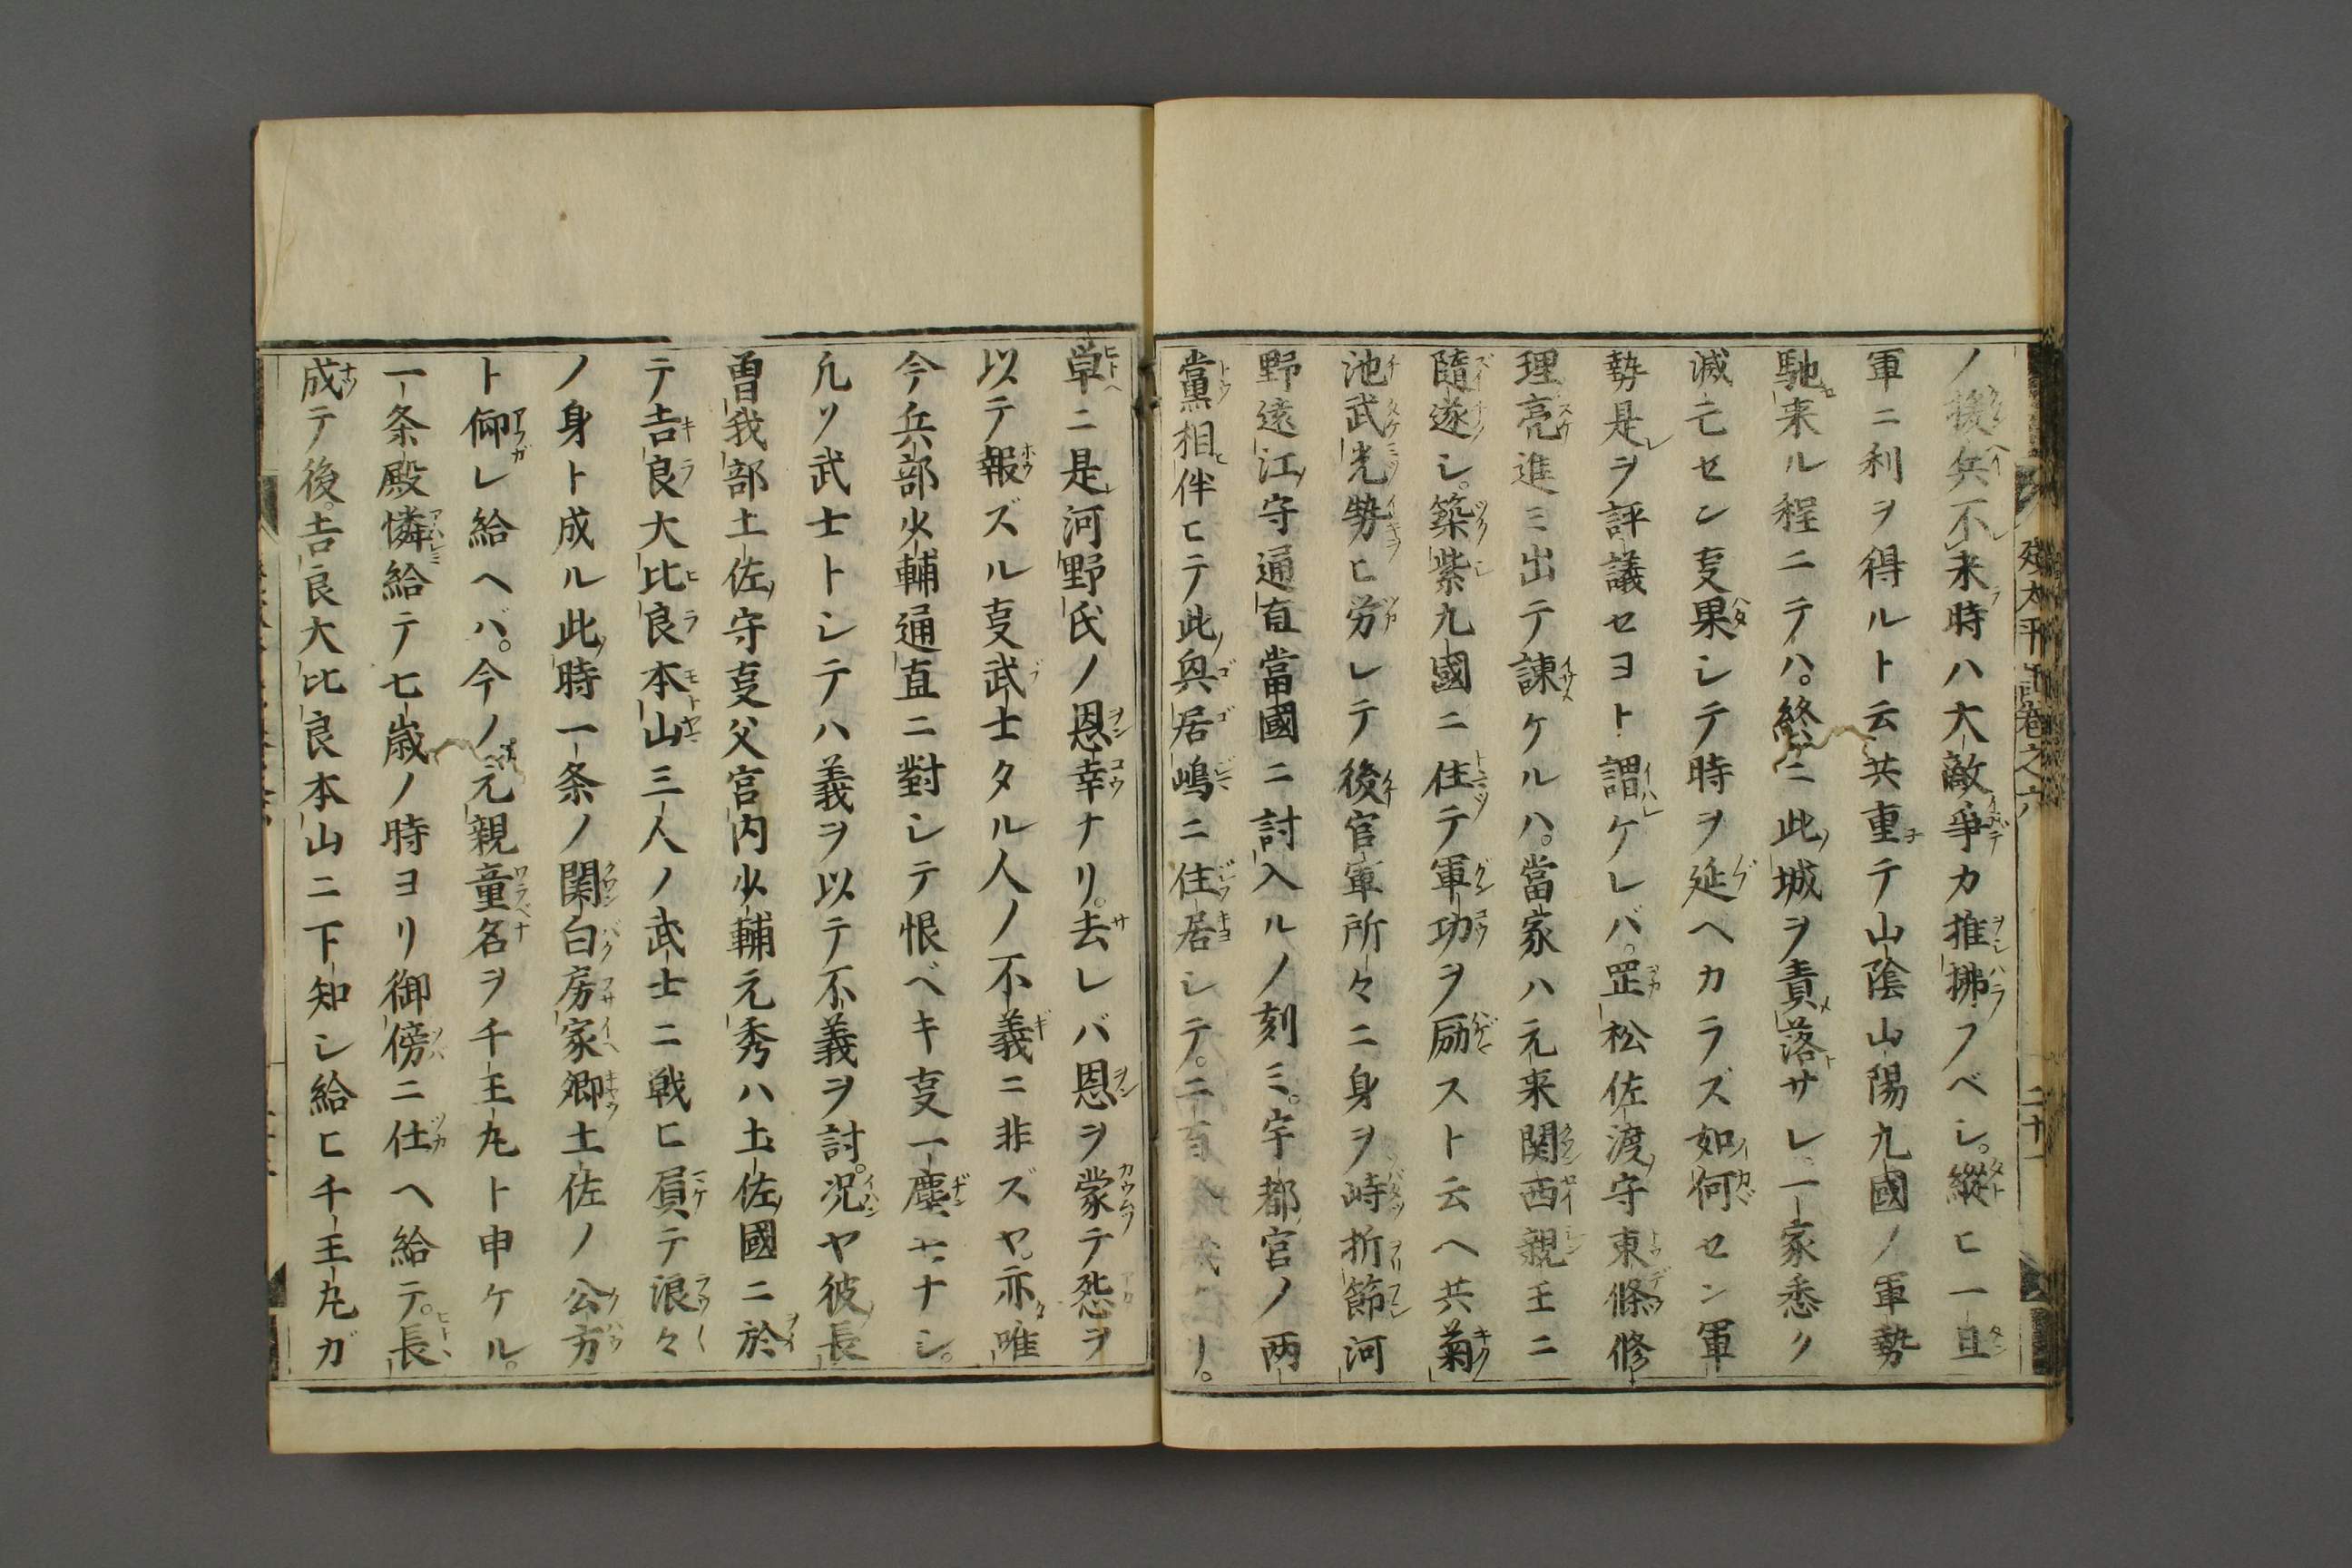 ノ援兵不来時ハ大敵爭カ推拂フベシ。縱ヒ一旦
軍ニ利ヲ得ルト云共重テ山陰山陽九國ノ軍勢
馳来ル程ニテハ。終ニ此城ヲ責落サレ。一家悉ク
滅亡セン㕝果シテ時ヲ延ベカラズ如何セン軍
勢是ヲ評議セヨト謂ケレバ。罡松佐渡守東條修
理亮進ミ出テ諌ケルハ。當家ハ元来関西親王ニ
隨遂シ。築紫九國ニ住テ軍功ヲ励スト云ヘ共菊
池武光勢ヒ労レテ後官軍所々ニ身ヲ峙折節河
野遠江守通直當國ニ討入ルノ刻ミ。宇都宮ノ両
黨相伴ヒテ此與居嶋ニ住居シテ。二百
草ニ是河野氏ノ恩幸ナリ。去レバ恩ヲ蒙テ怨ヲ
以テ報ズル㕝武士タル人ノ不義ニ非ズヤ。亦唯
今兵部少輔通直ニ對シテ恨ベキ㕝一塵モナシ。
凢ソ武士トシテハ義ヲ以テ不義ヲ討。况ヤ彼長
曽我部土佐守㕝父宮内少輔元秀ハ土佐國ニ於
テ吉良大比良本山三人ノ武士ニ戦ヒ屓テ浪々
ノ身ト成ル此時一条ノ関白房家卿土佐ノ公方
ト仰レ給ヘバ。今ノ元親童名ヲ千王丸ト申ケル。
一条殿憐給テ七歳ノ時ヨリ御傍ニ仕ヘ給テ。長
成テ後。吉良大比良本山ニ下知シ給ヒ千王丸ガ
太平記卷之六
二十一